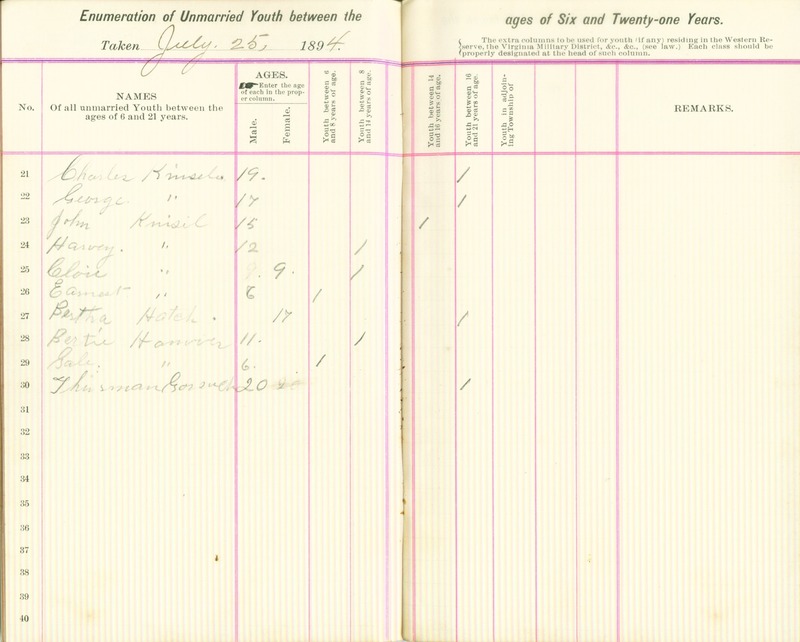 Enumeration of Unmarried Youth between the ages of Six and Twenty-one Years.
Taken July. 25, 1894.
The extra columns to be used for youth (if any) residing in the Western Re-
serve, the Virginia Military District, &c., &c., (see law.) Each class should be
properly designated at the head of such column.
No.
NAMES
Of all unmarried Youth between the
ages of 6 and 21 years.
AGES.
Enter the age
of each in the prop-
er column.
Male.
Female.
Youth between 6
and 8 years of age.
Youth between 8
and 14 years of age.
Youth between 14
and 16 years of age.
Youth between 16
and 21 years of age.
Youth in adjoin-
ing Township of
REMARKS.
21 Charles 19. /
22 George " 17 /
23 John Knisil 15 /
24 Harvey. " 12 /
25 Cloie " 9. /
26 Earnest " 6 /
27 Bertha Hatch. 17 /
28 Bertie 11. /
29 Gale. " 6. /
30 Thurman Gossuch 20 /
31
32
33
34
35
36
37
38
39
40